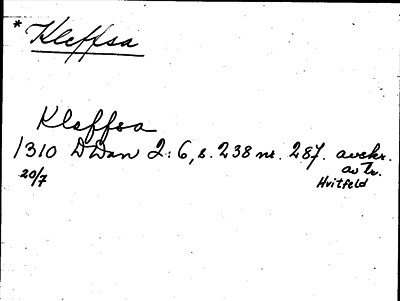 * Kleffsa
Kleffsa
1310 DDan 2:6, s. 238 nr. 287. avskr.
20/7 av tr.
Hvitfeld